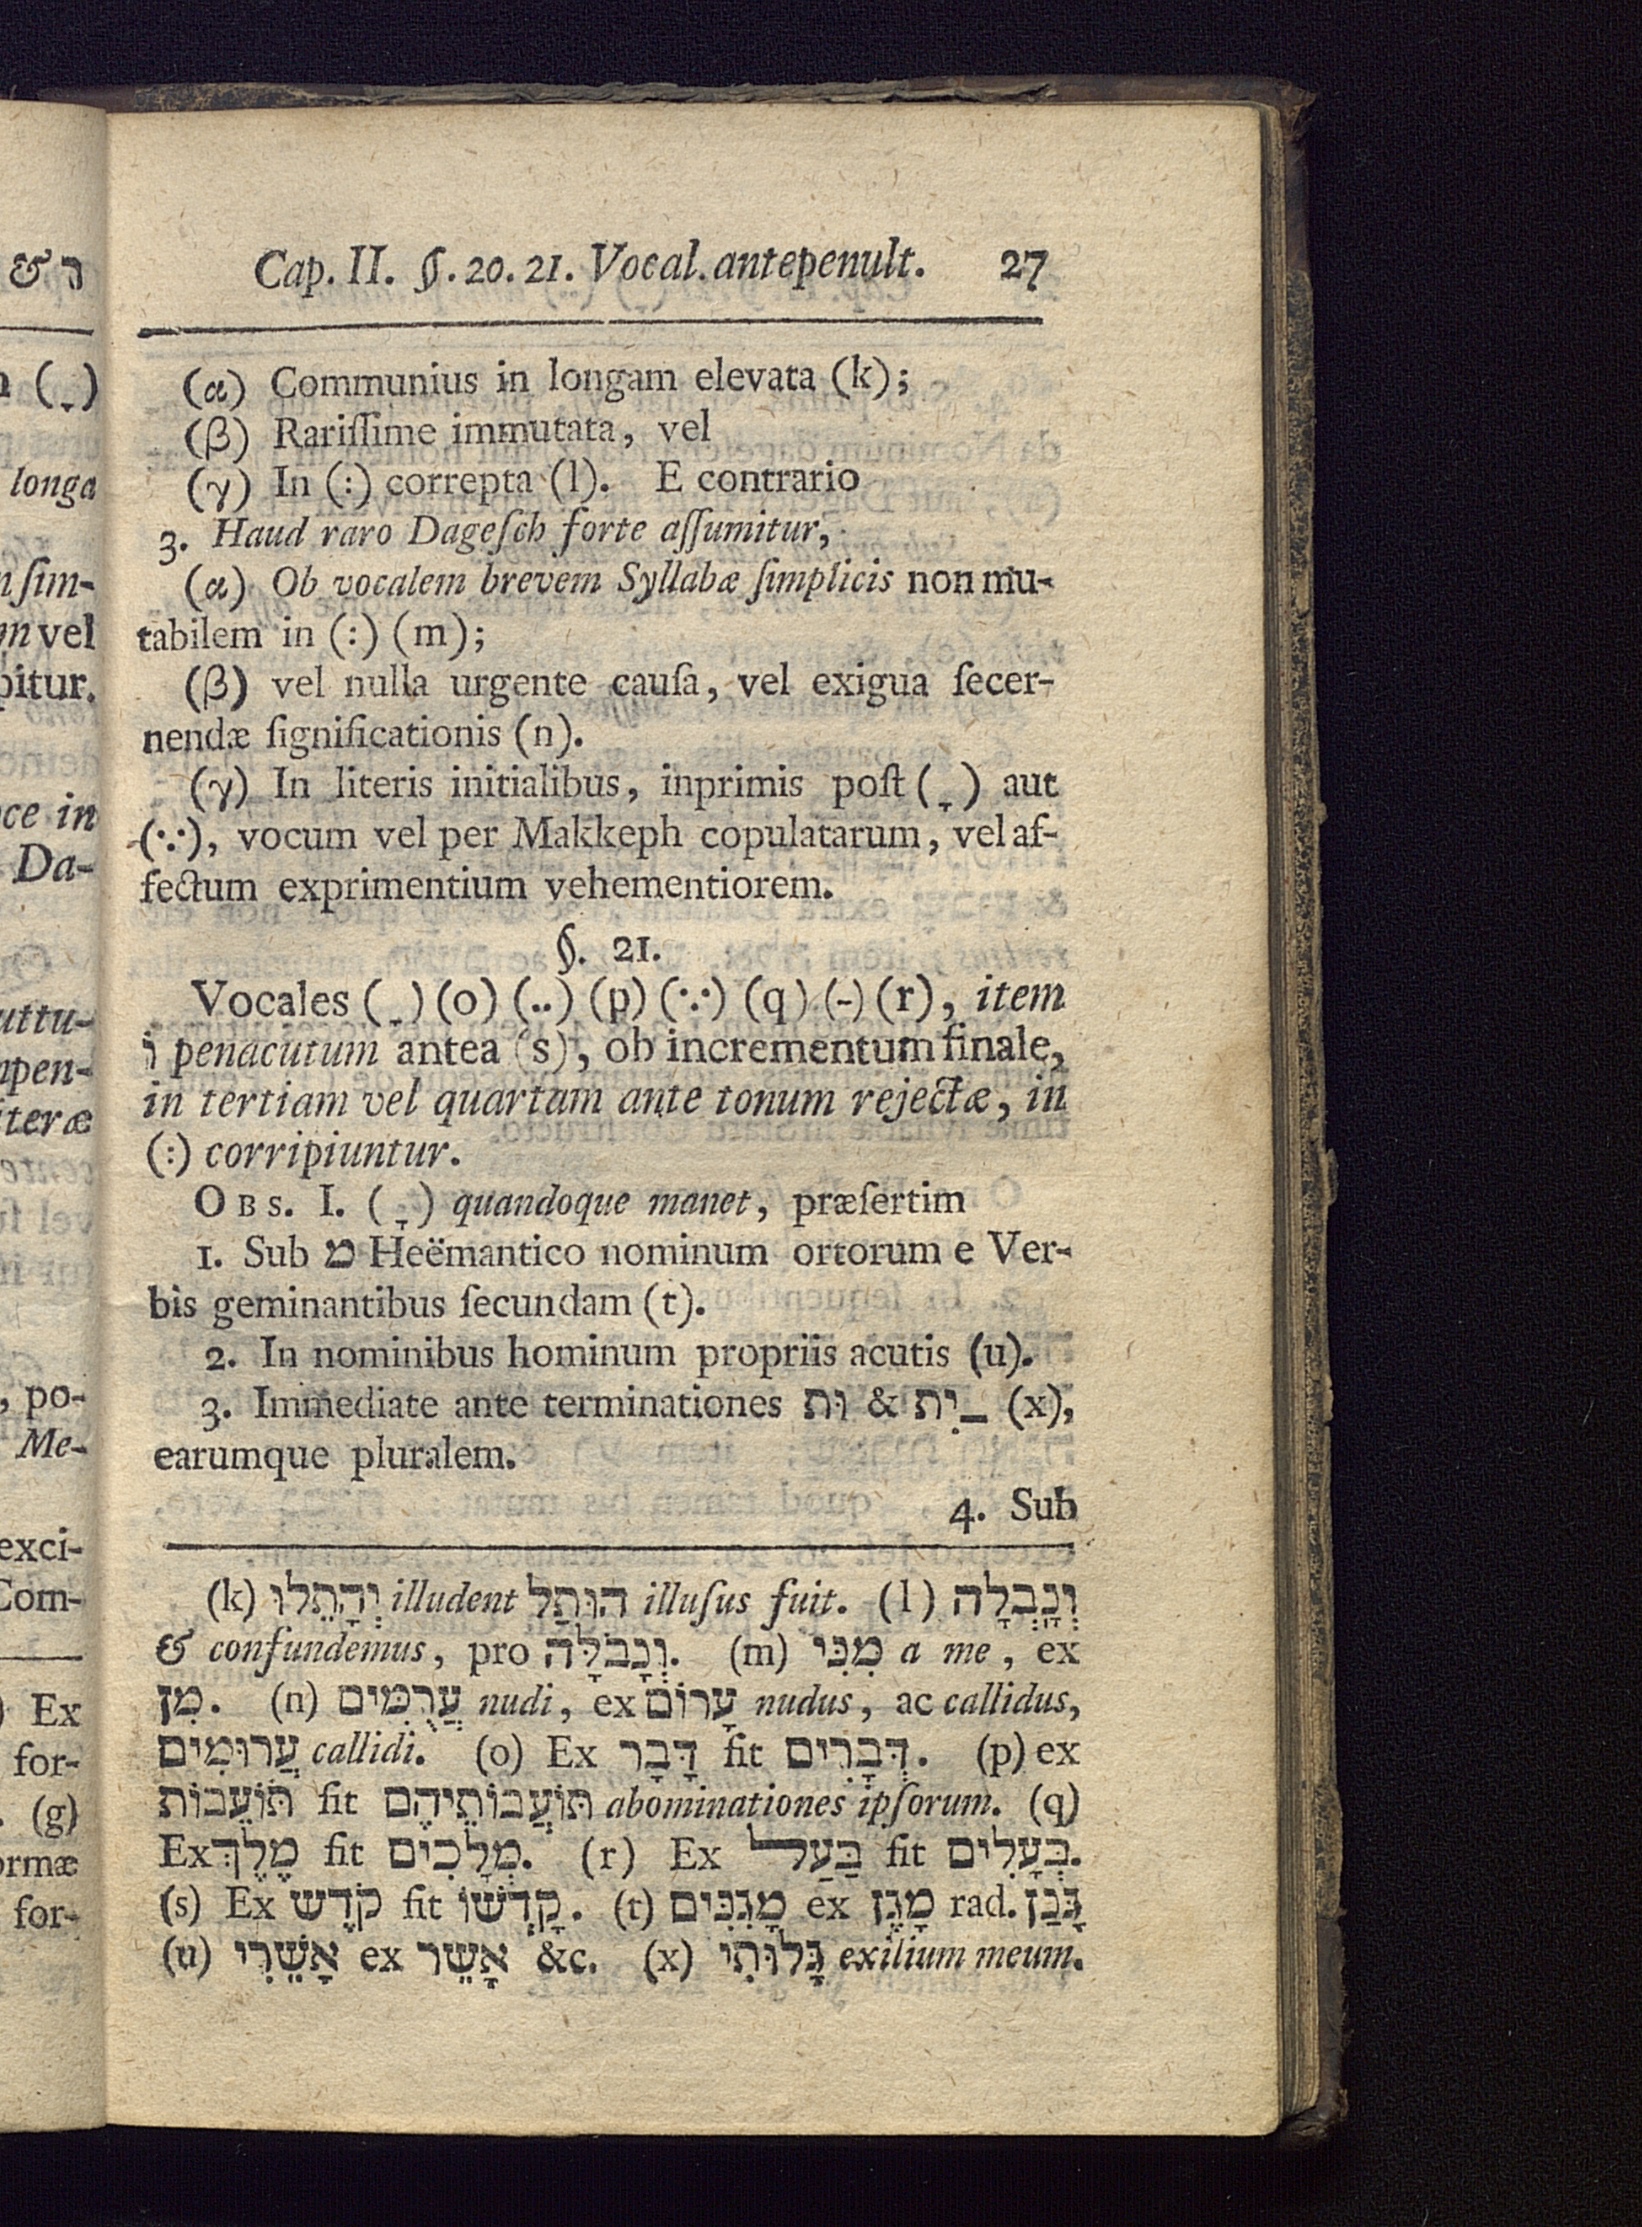 & ר
Cap. II. §. 20. 21. Vocal. antepenult. 27
(α) Communius in longam elevata (k);
(β) Rariſſime immutata, vel
(γ) In (:) correpta (l). E contrario
3. Haud raro Dageſch forte aſſumitur,
(α) Ob vocalem brevem Syllabæ ſimplicis non mu-
tabilem in (:) (m);
(β) vel nulla urgente cauſa, vel exigua ſecer-
nendæ ſignificationis (n).
(γ) In literis initialibus, inprimis poſt ( ָ ) aut
(∵), vocum vel per Makkeph copulatarum, vel af-
fectum exprimentium vehementiorem.
§. 21.
Vocales ( ָ ) (o) (..) (p) (∵) (q) (-) (r), item
וֹ penacutum antea (s), ob incrementum finale,
in tertiam vel quartam ante tonum rejectæ, in
(:) corripiuntur.
OBS. I. ( ָ ) quandoque manet, præſertim
1. Sub מ Heëmantico nominum ortorum e Ver-
bis geminantibus ſecundam (t).
2. In nominibus hominum propriis acutis (u).
3. Immediate ante terminationes וּת & ־ִית (x),
earumque pluralem.
4. Sub
(k) יְהָתֵלּוּ illudent הוּתַל illuſus fuit. (l) וְנָבְלָה
& confundemus, pro וְנָבֹלָּה. (m) מִנִּי a me, ex
מִן. (n) עֲרֻמִּים nudi, ex עָרוֹם nudus, ac callidus,
עֲרוּמִים callidi. (o) Ex דָּבָר fit דְּבָרִים. (p) ex
תּוֹעֵבוֹת fit תּוֹעֲבוֹתֵיהֶם abominationes ipſorum. (q)
Ex מֶלֶךְ fit מְלָכִים. (r) Ex בַּעַל fit בְּעָלִים.
(s) Ex קֹדֶש fit קָדְשׁוֹ. (t) מָגִנִּים ex מָגֵן rad. גָּנַן
(u) אָשֵׁרִי ex אָשֵׁר &c. (x) גָּלוּתִי exilium meum.